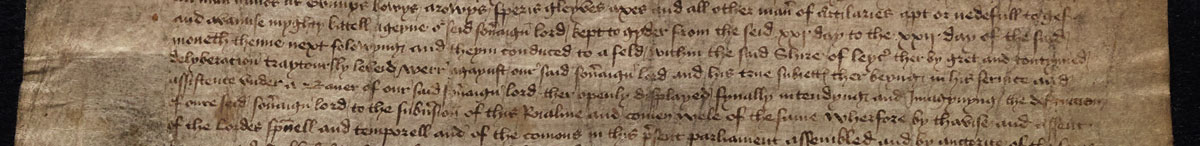 bowys arowys speris gleyves axes and all other man' of Artilaries apt or nedefull to gef
and cawse myghty batell ageyne oure seid sov'aign lord kept to gyder from the seid xxi day to the xxii day of the said
moneth thenne next folowyng and theym conduced to a feld within the said Shire of leyc' ther by gret and contynued
delyberacion traytoursly levied werr agaynst our' said sov'aign lord and his true subiett' ther beyng in his service and
assistence under a Baner of our said sov'aign lord ther openly displayed fynally intendyng and Imagynyng the destruccion
of oure seid sov'aign lord to the subv'sion of this Realme and comen wele of the same Wherfore by thavise and assent
of the lordes sp'uell and temporell and of the comons in this p'sent parliament assembled and by auctorite of the